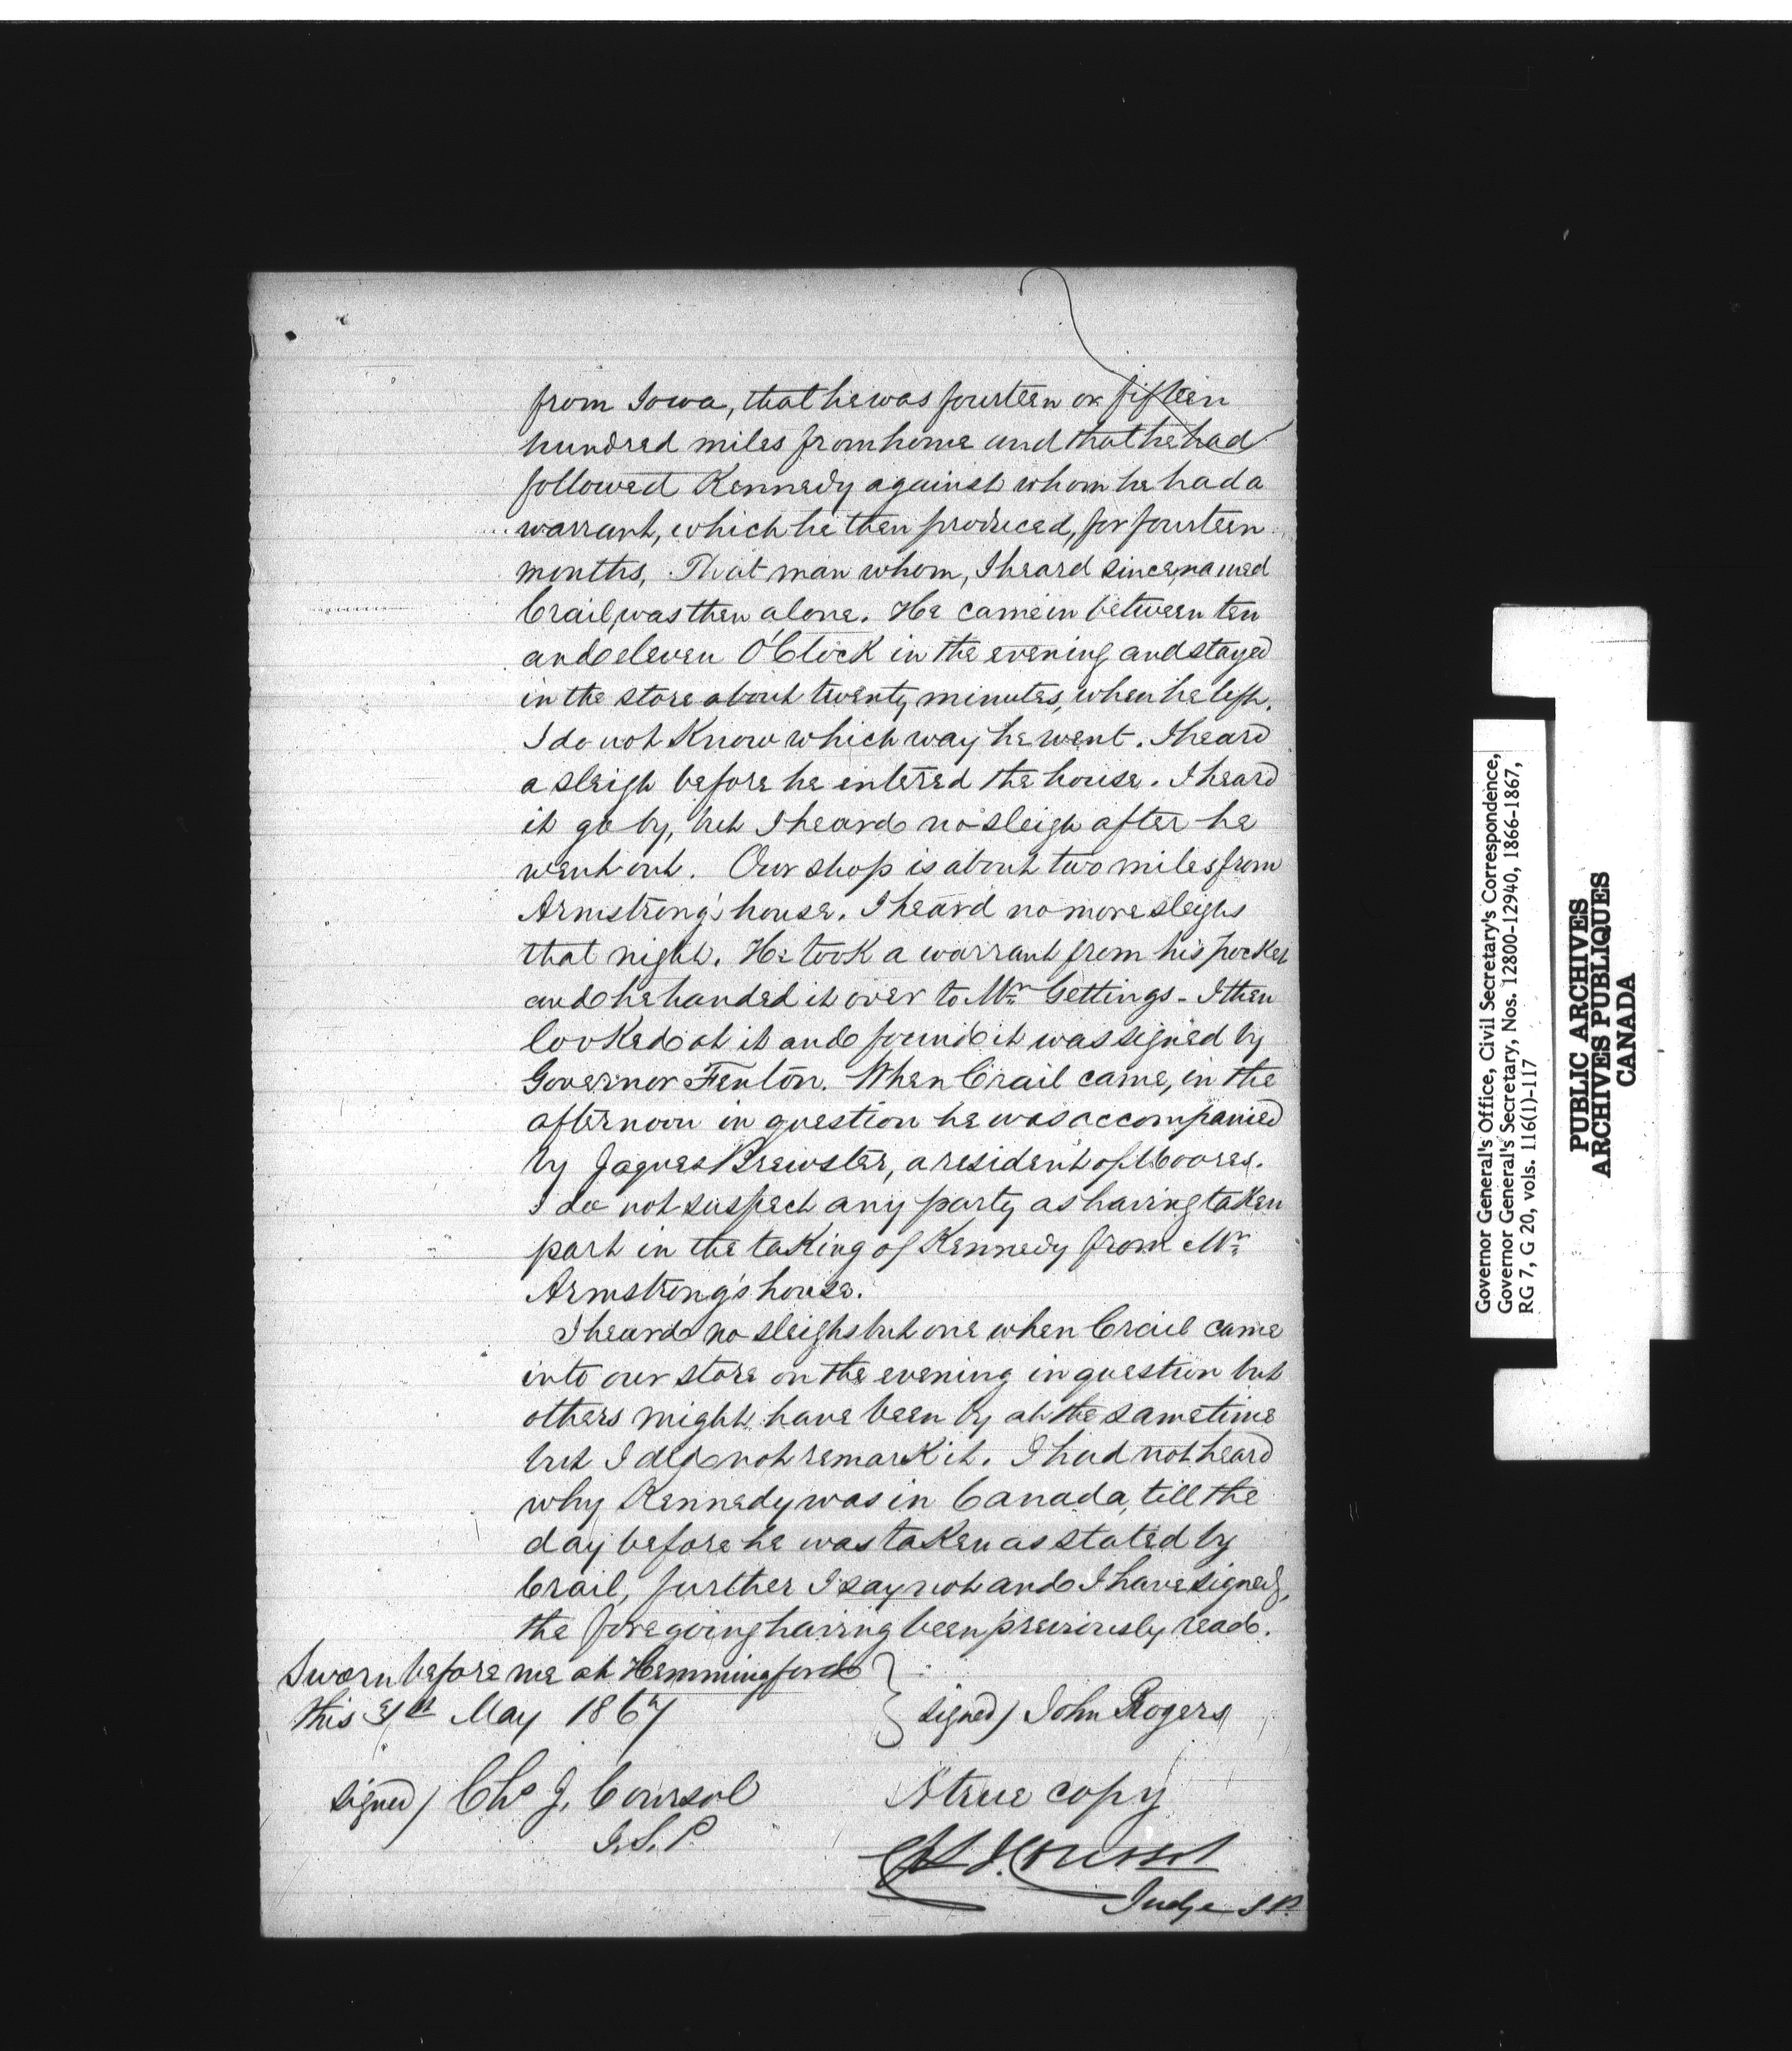 from Iowa, that he was fourteen or fifteen
hundred miles from home and that he had
followed Kennedy against whom he had a
warrant, which he then produced, for fourteen
months, That man whom, I heard since, named
Crail, was then alone. He came in between ten
and eleven O'Clock in the evening and stayed
in the store about twenty minutes, when he left.
I do not Know which way he went. I heard
a sleigh before he entered the house. I heard
it go by, but I heard no sleigh after he
went out. Our shop is about two miles from
Armstrong's house. I heard no more sleighs
that night. He took a warrant from his pocket
and he handed it over to Mr Gettings - I then
looked at it and found it was signed by
Governor Fenton. When Crail came, in the
afternoon in question he was accompanied
by Jaques Brewster, a resident of Moores.
I do not suspect any party as having taken
part in the taking of Kennedy from Mr
Armstrong's house.
I heard no sleighs but one when Crail came
into our store on the evening in question but
others might have been by at the same time
but I did not remark it. I had not heard
why Kennedy was in Canada, till the
day before he was taken as stated by
Crail, further I say not and I have signed,
the foregoing having been previously read.
Sworn before me at Hemmingford
this 31st May 1867
signed / John Rogers
signed / Chs J. Coursol
J.S.P.
A true copy
Chs J. Coursol
Judge S.P.
Governor General's Office, Civil Secretary's Correspondence,
Governor General's Secretary, Nos. 12800-12940, 1866-1867,
RG 7, G 20, vols. 116(1)-117
PUBLIC ARCHIVES
ARCHIVES PUBLIQUES
CANADA